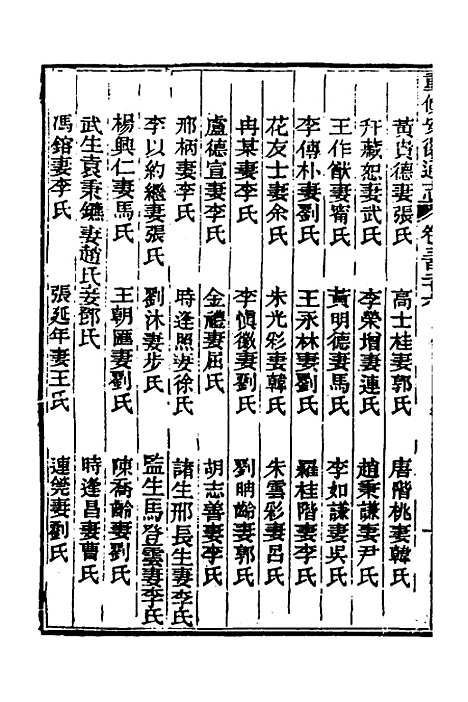 重修安徽通志 卷三百三十六
黃貢德妻張氏 高士桂妻郭氏 唐階桃妻韓氏
許蔵恕妻武氏 李榮增妻連氏 趙秉謙妻尹氏
王作猷妻甯氏 黃明德妻馬氏 李如謙妻吳氏
李傳朴妻劉氏 王永林妻劉氏 羅桂階妻李氏
花友士妻余氏 朱光彩妻韓氏 朱雲彩妻呂氏
冉某妻李氏 李愼徽妻劉氏 劉晭齡妻郭氏
盧德宣妻李氏 金禮妻屈氏 胡志善妻李氏
邢柄妻李氏 時逢照妻徐氏 諸生邢長生妻李氏
李以約繼妻張氏 劉沐妻步氏 監生馬登雲妻李氏
楊興仁妻馬氏 王朝匯妻劉氏 陳喬齡妻劉氏
武生袁秉鑑妻趙氏妾鄧氏 時逢昌妻曹氏
馮錧妻李氏 張延年妻王氏 連筦妻劉氏